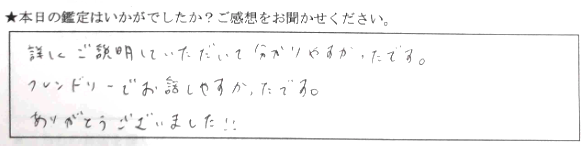 ★本日の鑑定はいかがでしたか？ご感想をお聞かせください。
詳しくご説明していただいて分かりやすかったです。
フレンドリーでお話しやすかったです。
ありがとうございました!!